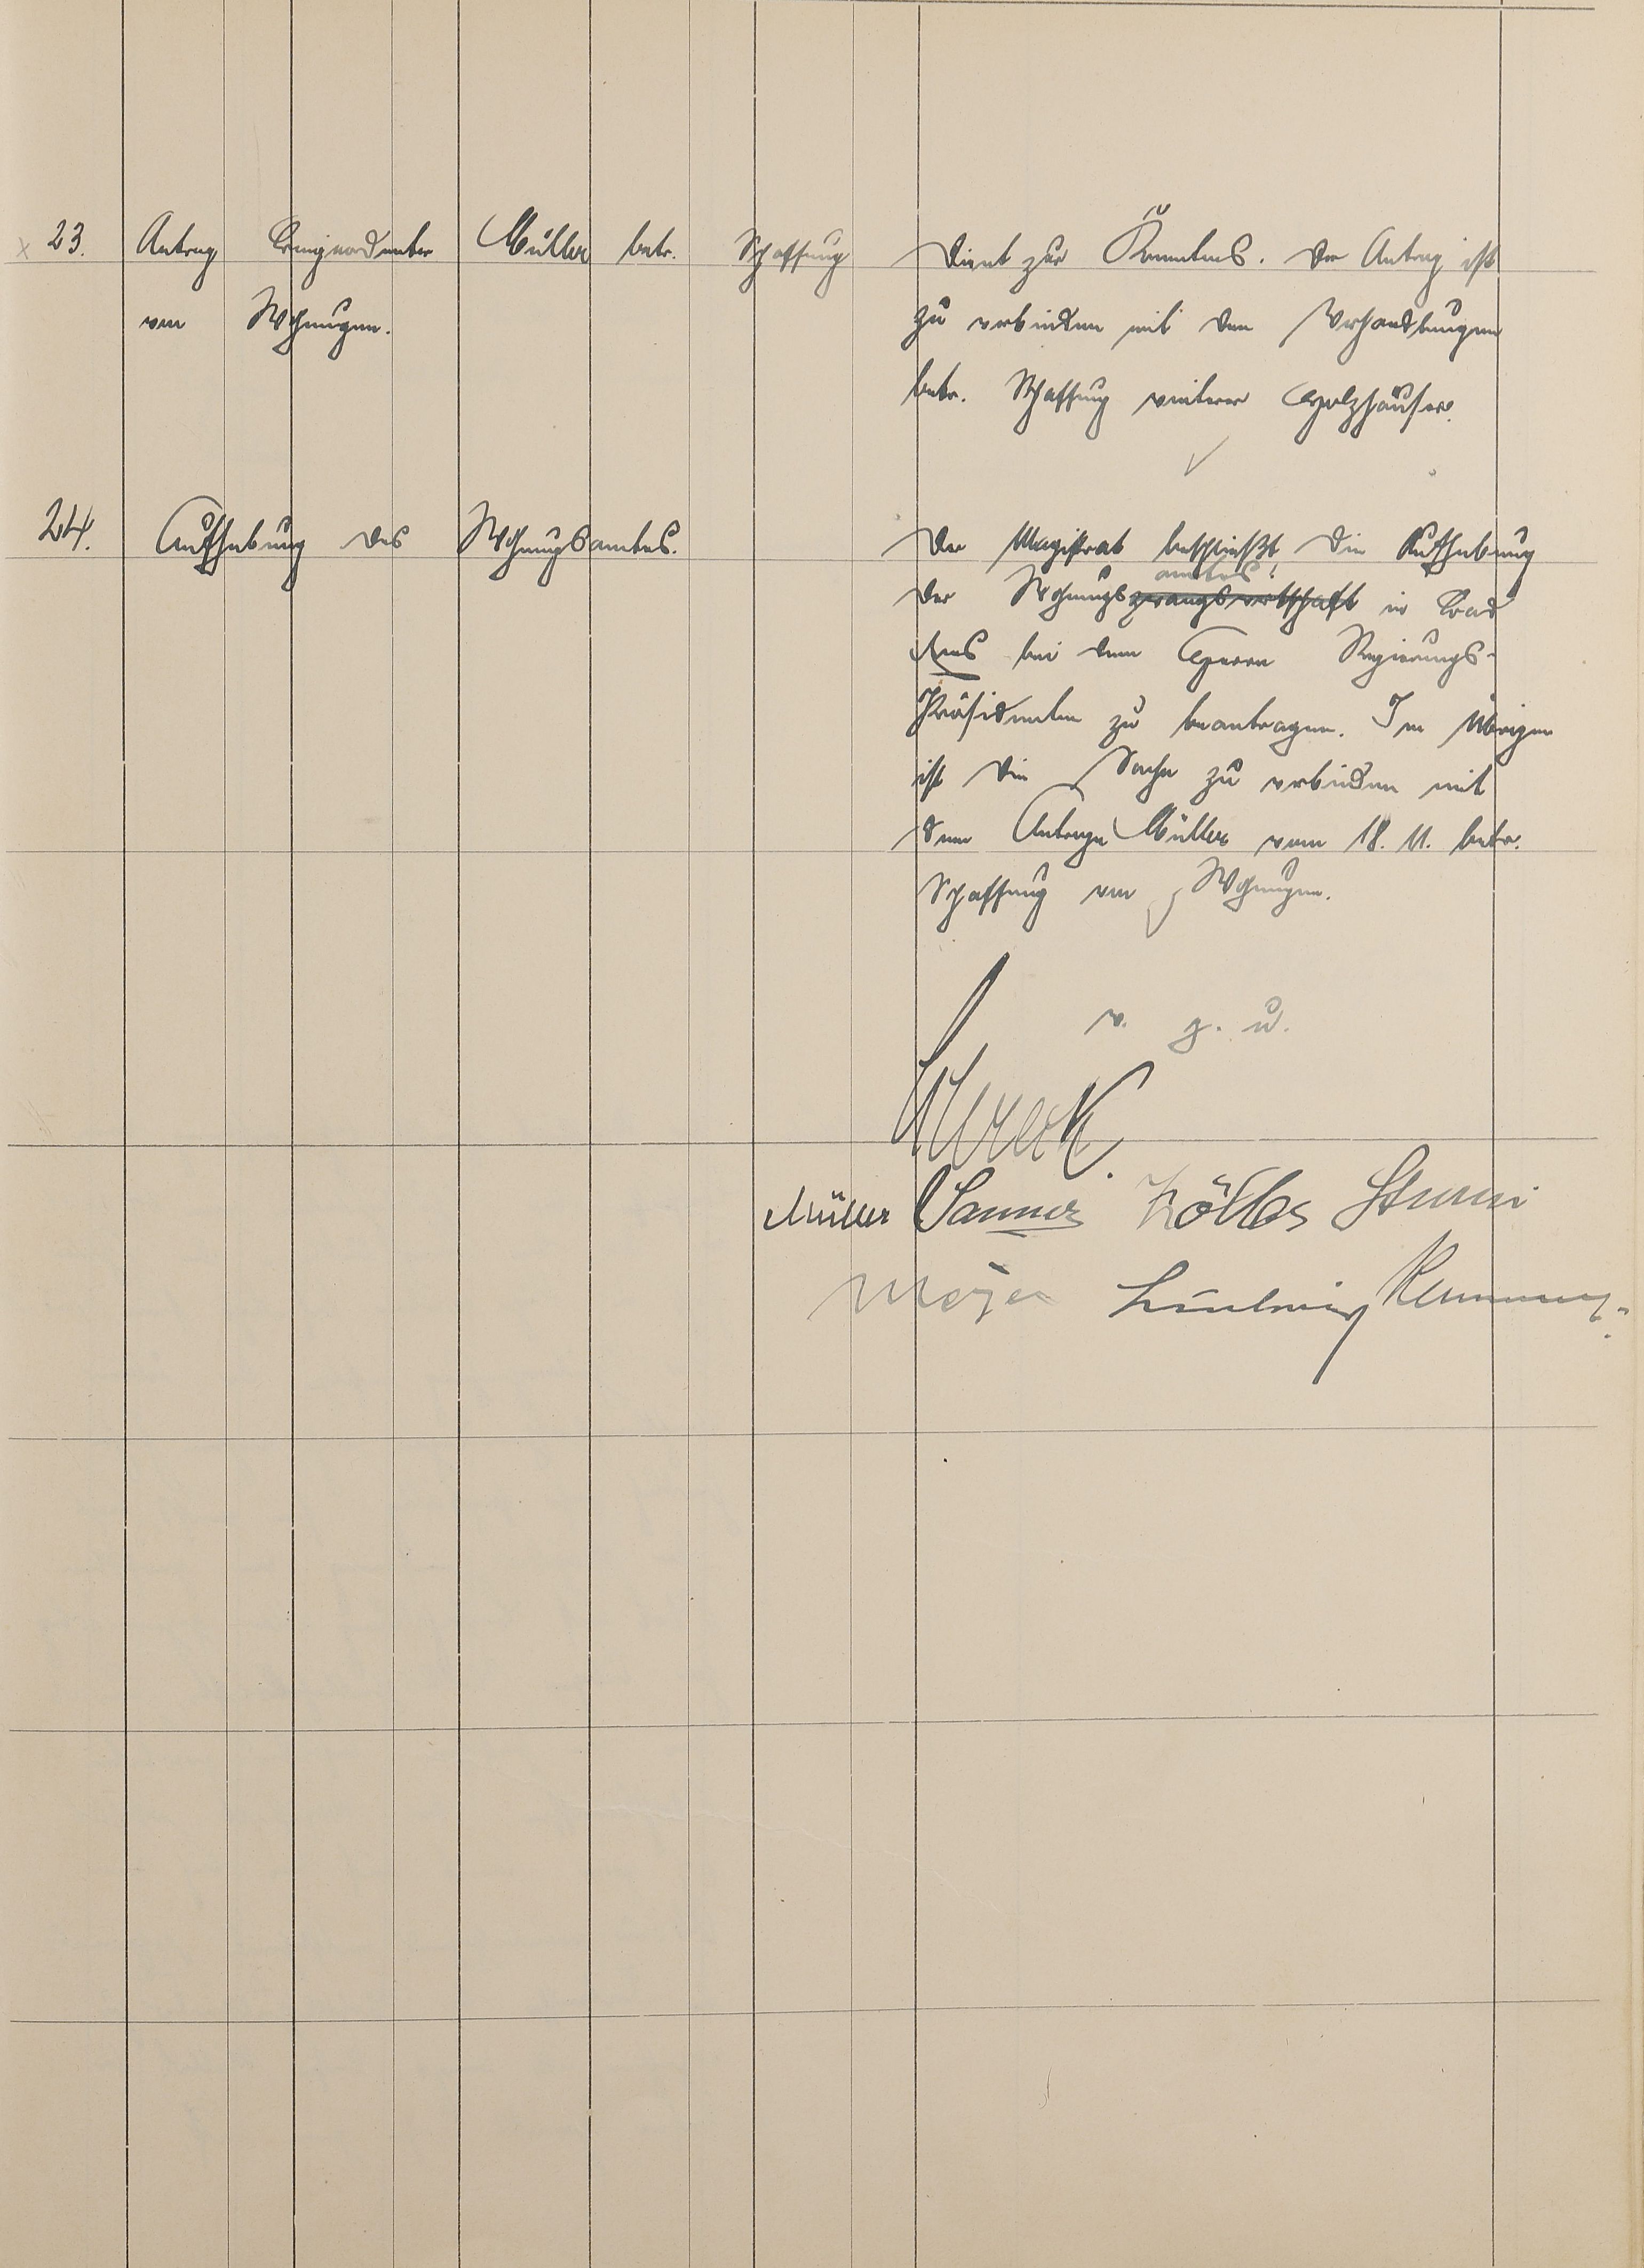 23. Antrag Beigeordneter Müller betr. Schaffung
von Wohnungen.
Dient zur Kenntnis. Der Antrag ist
zu verbinden mit den Verhandlungen
betr. Schaffung weiterer Holzhäuser.
24. Aufhebung des Wohnungsamtes.
Der Magistrat beschließt, die Aufhebung
amtes
der Wohnungszwangswirtschaft in Bad
Ems bei dem Herrn Regierungs-
Präsidenten zu beantragen. Im übrigen
ist die Sache zu verbinden mit
dem Antrage Müller vom 18. 11. betr.
Schaffung von Wohnungen.
v. g. u.
Müller Sanner
Meyer Ludwig